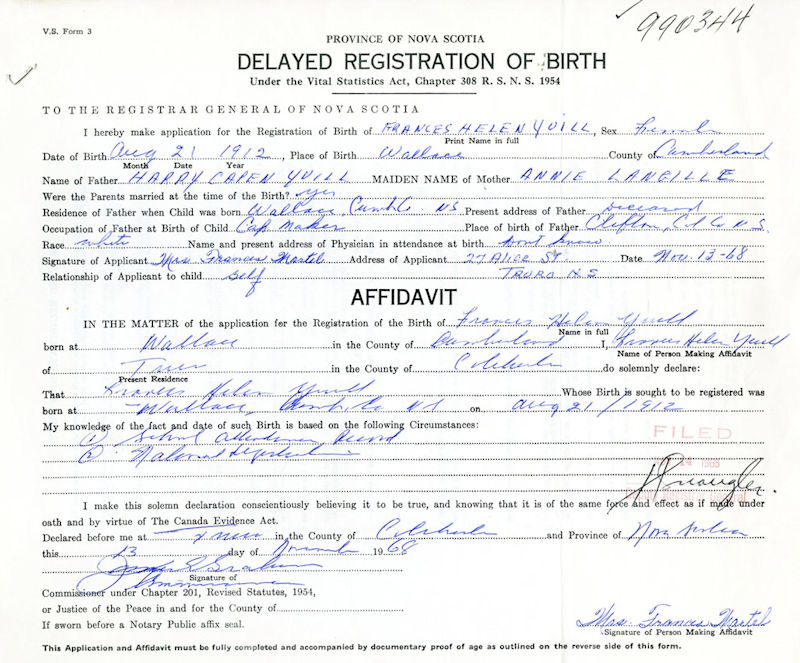 V.S. Form 3
990344
PROVINCE OF NOVA SCOTIA
DELAYED REGISTRATION OF BIRTH
Under the Vital Statistics Act, Chapter 308 R. S. N. S. 1954
TO THE REGISTRAR GENERAL OF NOVA SCOTIA
I hereby make application for the Registration of Birth of FRANCES HELEN YUILL, Sex Female
Print Name in full
Date of Birth Aug 21 1912, Place of Birth Wallace County of Cumberland
Month Date Year
Name of Father HARRY CAPEN YUILL MAIDEN NAME of Mother ANNIE LANGILLE
Were the Parents married at the time of the Birth? yes
Residence of Father when Child was born Wallace, Cumb C. NS Present address of Father Deceased
Occupation of Father at Birth of Child Cap Maker Place of birth of Father Clifton, Col Co N.S.
Race white Name and present address of Physician in attendance at birth Dont know
Signature of Applicant Mrs Frances Martel Address of Applicant 27 Alice St. Date Nov. 13-68
Relationship of Applicant to child self TRURO N.S
AFFIDAVIT
IN THE MATTER of the application for the Registration of the Birth of Frances Helen Yuill
Name in full
born at Wallace in the County of Cumberland I, Frances Helen Yuill
Name of Person Making Affidavit
of Truro in the County of Colchester do solemnly declare:
Present Residence
That Frances Helen Yuill Whose Birth is sought to be registered was
born at Wallace, Cumb, Co NS on Aug 21/1912
My knowledge of the fact and date of such Birth is based on the following Circumstances:
(1) School Attendance Record
(2) National Registration
FILED
14
I make this solemn declaration conscientiously believing it to be true, and knowing that it is of the same force and effect as if made under
oath and by virtue of The Canada Evidence Act.
Declared before me at Truro in the County of Colchester and Province of Nova Scotia
this 13 day of November 1968
Signature of
Commissioner under Chapter 201, Revised Statutes, 1954,
or Justice of the Peace in and for the County of
If sworn before a Notary Public affix seal.
Mrs. Frances Martel
Signature of Person Making Affidavit
This Application and Affidavit must be fully completed and accompanied by documentary proof of age as outlined on the reverse side of this form.